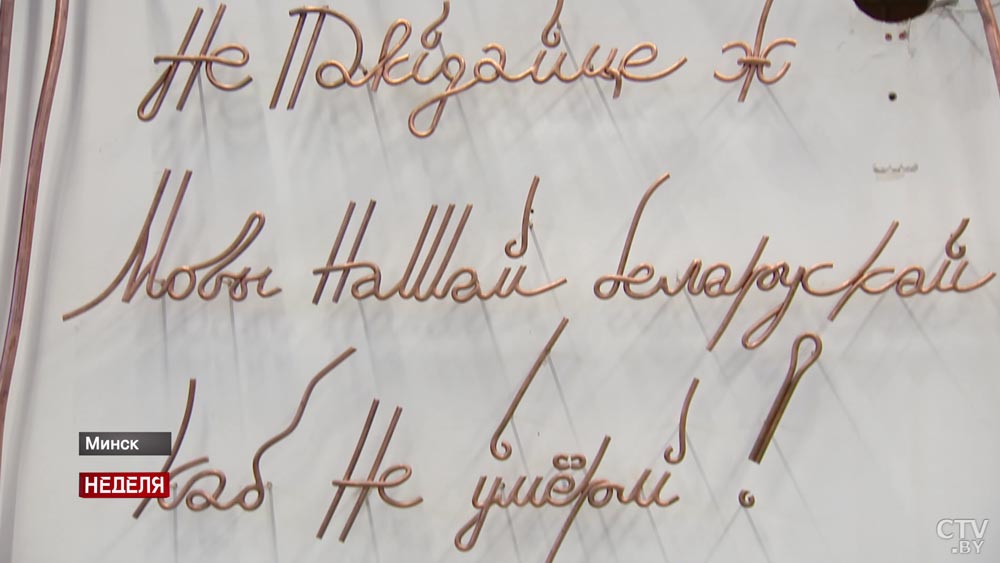 Не Пакідайце ж
Мовы Нашай беларускай
каб Не ўмёрлі !
Минск
НЕДЕЛЯ
CTV
.BY